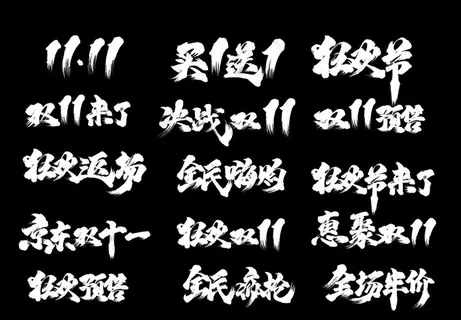 11.11 买1送1 狂欢节
双11来了 决战双11 双11预售
狂欢返场 全民嗨购 狂欢节来了
京东双十一 狂欢双11 惠聚双11
狂欢预售 全民疯抢 全场半价